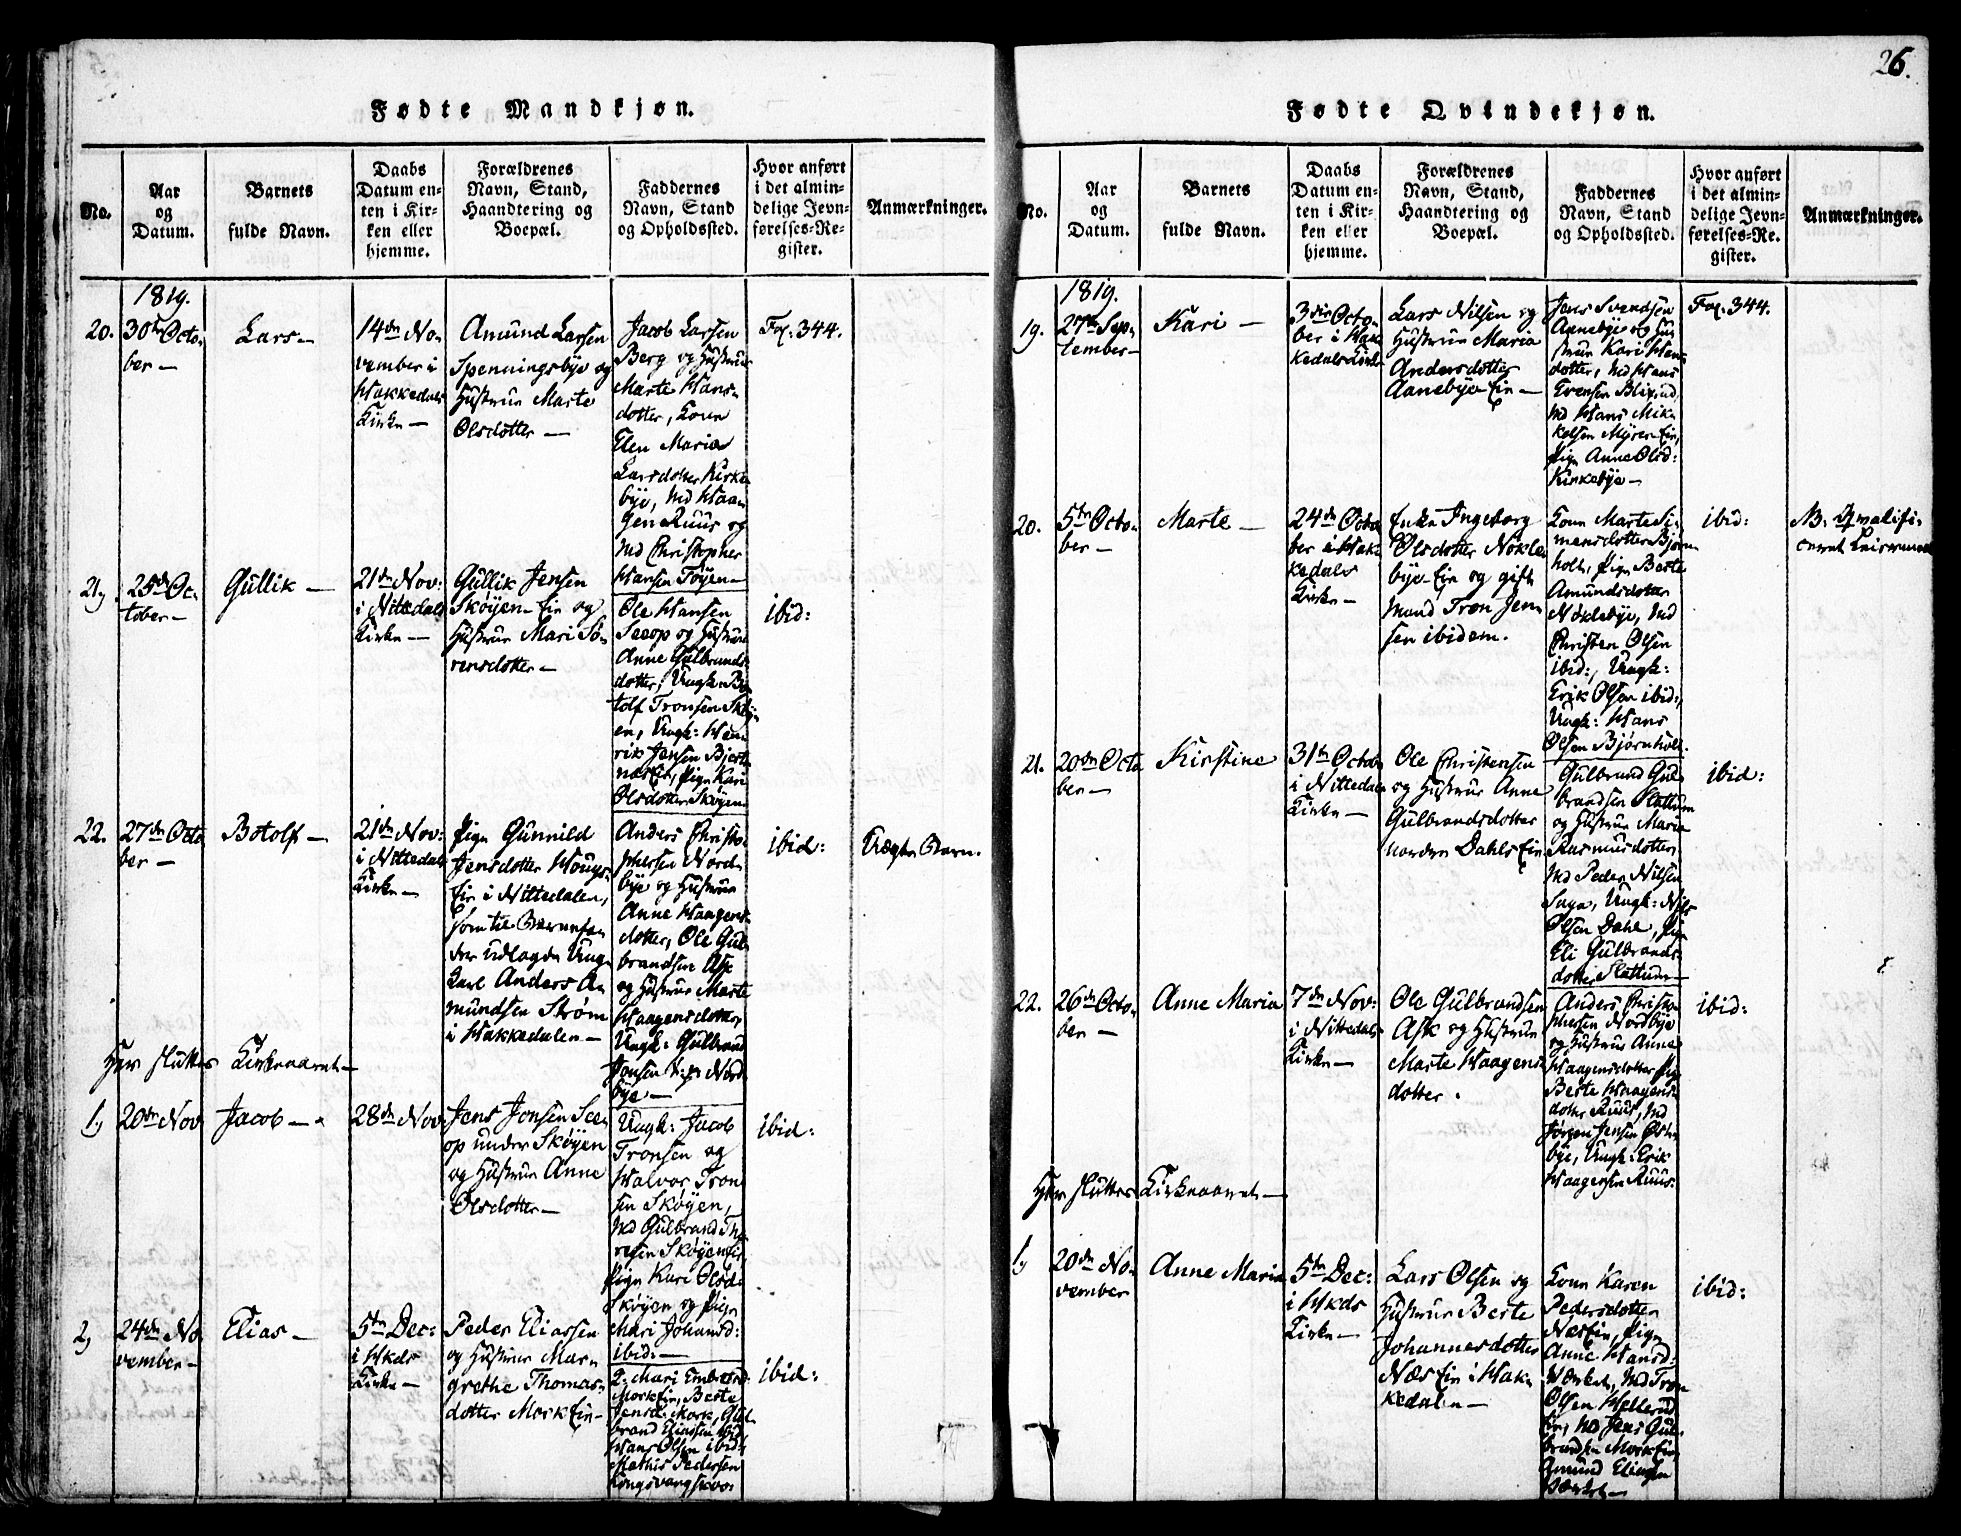 26.
Fødte Mandkjøn.
No.
Aar
og
Datum.
Barnets
fulde Navn.
Daabs
Datum en-
ten i Kir-
ken eller
hjemme.
Forældrenes
Navn, Stand,
Haandtering og
Boepæl.
Faddernes
Navn, Stand
og Opholdssted.
Hvor anført
i det almin-
delige Jevn-
førelses-Re-
gister.
Anmærkninger.
1819.
20.
30te Octo-
ber —
Lars —
14de No-
vember i
Hakkedals
Kirke —
Amund Larsen
Spenningsbye og
Hustrue Marte
Olsdotter —
Jacob Larsen
Berg og Hustrue
Marte Hans-
dotter, Kone
Elen Maria
Larsdotter Kirke
bye, Md Haa
gen Ruus og
Md Christopher
Hansen Töyen —
Fol. 344.
21,
25de Oc-
tober —
Gullik —
21de Nov:
i Nittedals
Kirke —
Gullik Jensen
Skøyen Ein og
Hustrue Mari Sö-
rensdotter —
Ole Hansen
Seeop og Hustrue
Anne Gulbrands
dotter, Ungk. Bo
tolf Tronsen Skøy
en, Ungk: Hen
rik Jensen Bjert
næs Ein, Pige Kari
Olsdotter Skøyen
ibid:
22.
27de Octo
ber —
Botolf —
21de Nov:
i Nittedals
Kirke —
Pige Gunnild
Jensdotter Houg
Ein i Nittedalen,
som til Barnefa
der udlagde Ung
Karl Anders A
mundsen Strøm
i Hakkedalen —
Anders Christo-
phersen Nord
bye og Hustrue
Anne Haagens
dotter, Ole Gul
brandsen Ask
og Hustrue Marte
Haagensdotter,
Ungk: Gulbrand
Jonsen Nord
bye —
ibid:
Uægte Barn.
Her sluttes Kirkeaaret —
1,
20de Nov
Jacob —
28de Nov
Jens Jonsen See
op under Skøyen
og Hustrue Anne
Olsdotter —
Ungk: Jacob
Tronsen og
Halvor Tron
sen Skøyen,
Md Gulbrand Tho
resen Skøyen Ein,
Pige Kari Olsd.
Skøyen og Pige
Mari Johansd:
ibid: —
ibid:
2,
24de No
vember —
Elias —
5te Dec:
i Hkds
Kirke —
Peder Eliassen
og Hustrue Mar-
grethe Thomas-
dotter Mork Ein —
Mari
Mork Ein, Berte
Jensd: Mork, Gul
brand Eliassen ibid
Hans Olsen ibid:
Mathis Pedersen
ibid:
Fødte Qvindekjøn.
No.
Aar
og
Datum.
Barnets
fulde Navn.
Daabs
Datum en-
ten i Kir-
ken eller
hjemme.
Forældrenes
Navn, Stand,
Haandtering og
Boepæl.
Faddernes
Navn, Stand
og Opholdssted.
Hvor anført
i det almin-
delige Jevn-
førelses-Re-
gister.
Anmærkninger.
1819.
19.
27de Sep-
tember —
Kari —
3die Octo-
ber i Hak
kedals Kirke
Lars Nilsen og
Hustrue Maria
Andersdotter
Aanebye Ein —
Jens Svendsen
Aanebye og Hu
strue Kari Hans
dotter, Md Hans
Evensen Blixrud,
Md Hans Mik
kelsen Myren Ein,
Pige Anne Olsd:
Kirkebye —
Fol. 344.
20.
5te Octo-
ber —
Marte —
24de Octo
ber i Hak
kedals
Kirke —
Enke Ingeborg
Olsdotter Nökle
bye Ein og gift
Mand Tron Jen
sen ibidem.
Kone Marte Si-
mensdotter Bjørn
holt, Pige Berte
Amundsdotter
Nöklebye, Md
Christen Olsen
ibid:, Ungk:
Erik Olsen ibid:,
Ungk: Hans
Olsen Bjørnholt.
ibid:
NB. Qvalifi-
ceret Leiermaal
21.
20de Octo
ber —
Kirstine
31te Octob
i Nittedals
Kirke —
Ole Christensen
og Hustrue Anne
Gulbrandsdotter
nordre Dahls Ein
Gulbrand Gul
brandsen Slattum
og Hustrue Maria
Rasmusdotter
Md Peder Nilsen
Sagen, Ungk: Nils
Olsen Dahl, Pige
Eli Gulbrands
dotter Slattum —
ibid:
22.
26de Octo-
ber —
Anne Maria
7de Nov:
i Nittedals
Kirke —
Ole Gulbrandsen
Ask og Hustrue
Marte Haagens
dotter.
Anders Christo
phersen Nordbye
og Hustrue Anne
Haagensdotter, Pige
Berte Haagens
dotter Ruus, Md
Jørgen Jensen Østre
bye, Ungk: Erik
Haagensen Ruus.
ibid:
Her sluttes Kirkeaaret —
1,
20de No-
vember
Anne Maria
5te Dec:
i Hkds
Kirke —
Lars Olsen og
Hustrue Berte
Johannesdotter
Næs Ein i Hak-
kedalen —
Kone Karen
Pedersdotter
Næs Ein, Pige
Anne Hansd:
Værket, Md Tron
Olsen Hellerud
Ein, Md Jens Gul
brandsen Mork Ein
Amund
Værket —
ibid: